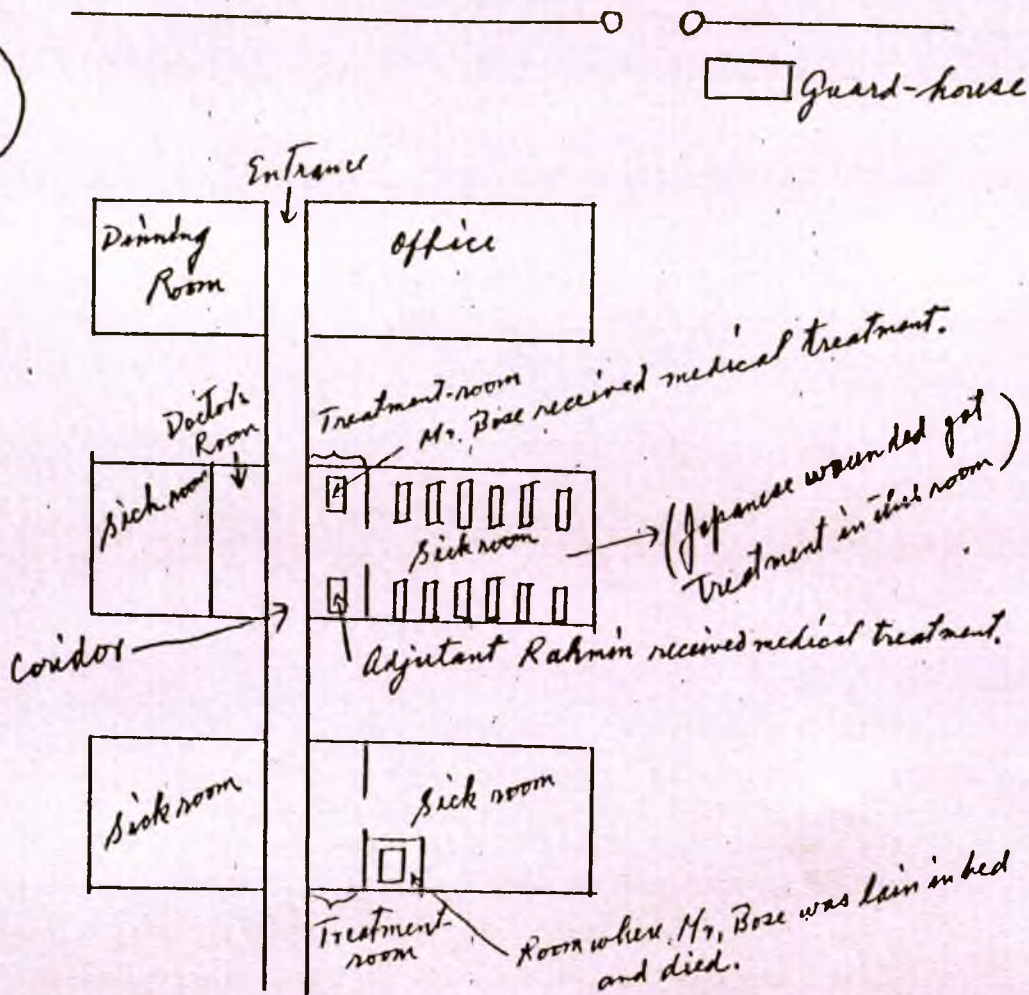 Guard-house
Entrance
Dinning
Room
Office
Doctor's
Room
Treatment-room
Mr. Bose received medical treatment.
Sick room
Sick room
(Japanese wounded got
treatment in this room)
Coridor
Adjutant Rahmin received medical treatment.
Sick room
Sick room
Treatment-
room
Room where Mr. Bose was lain in bed
and died.